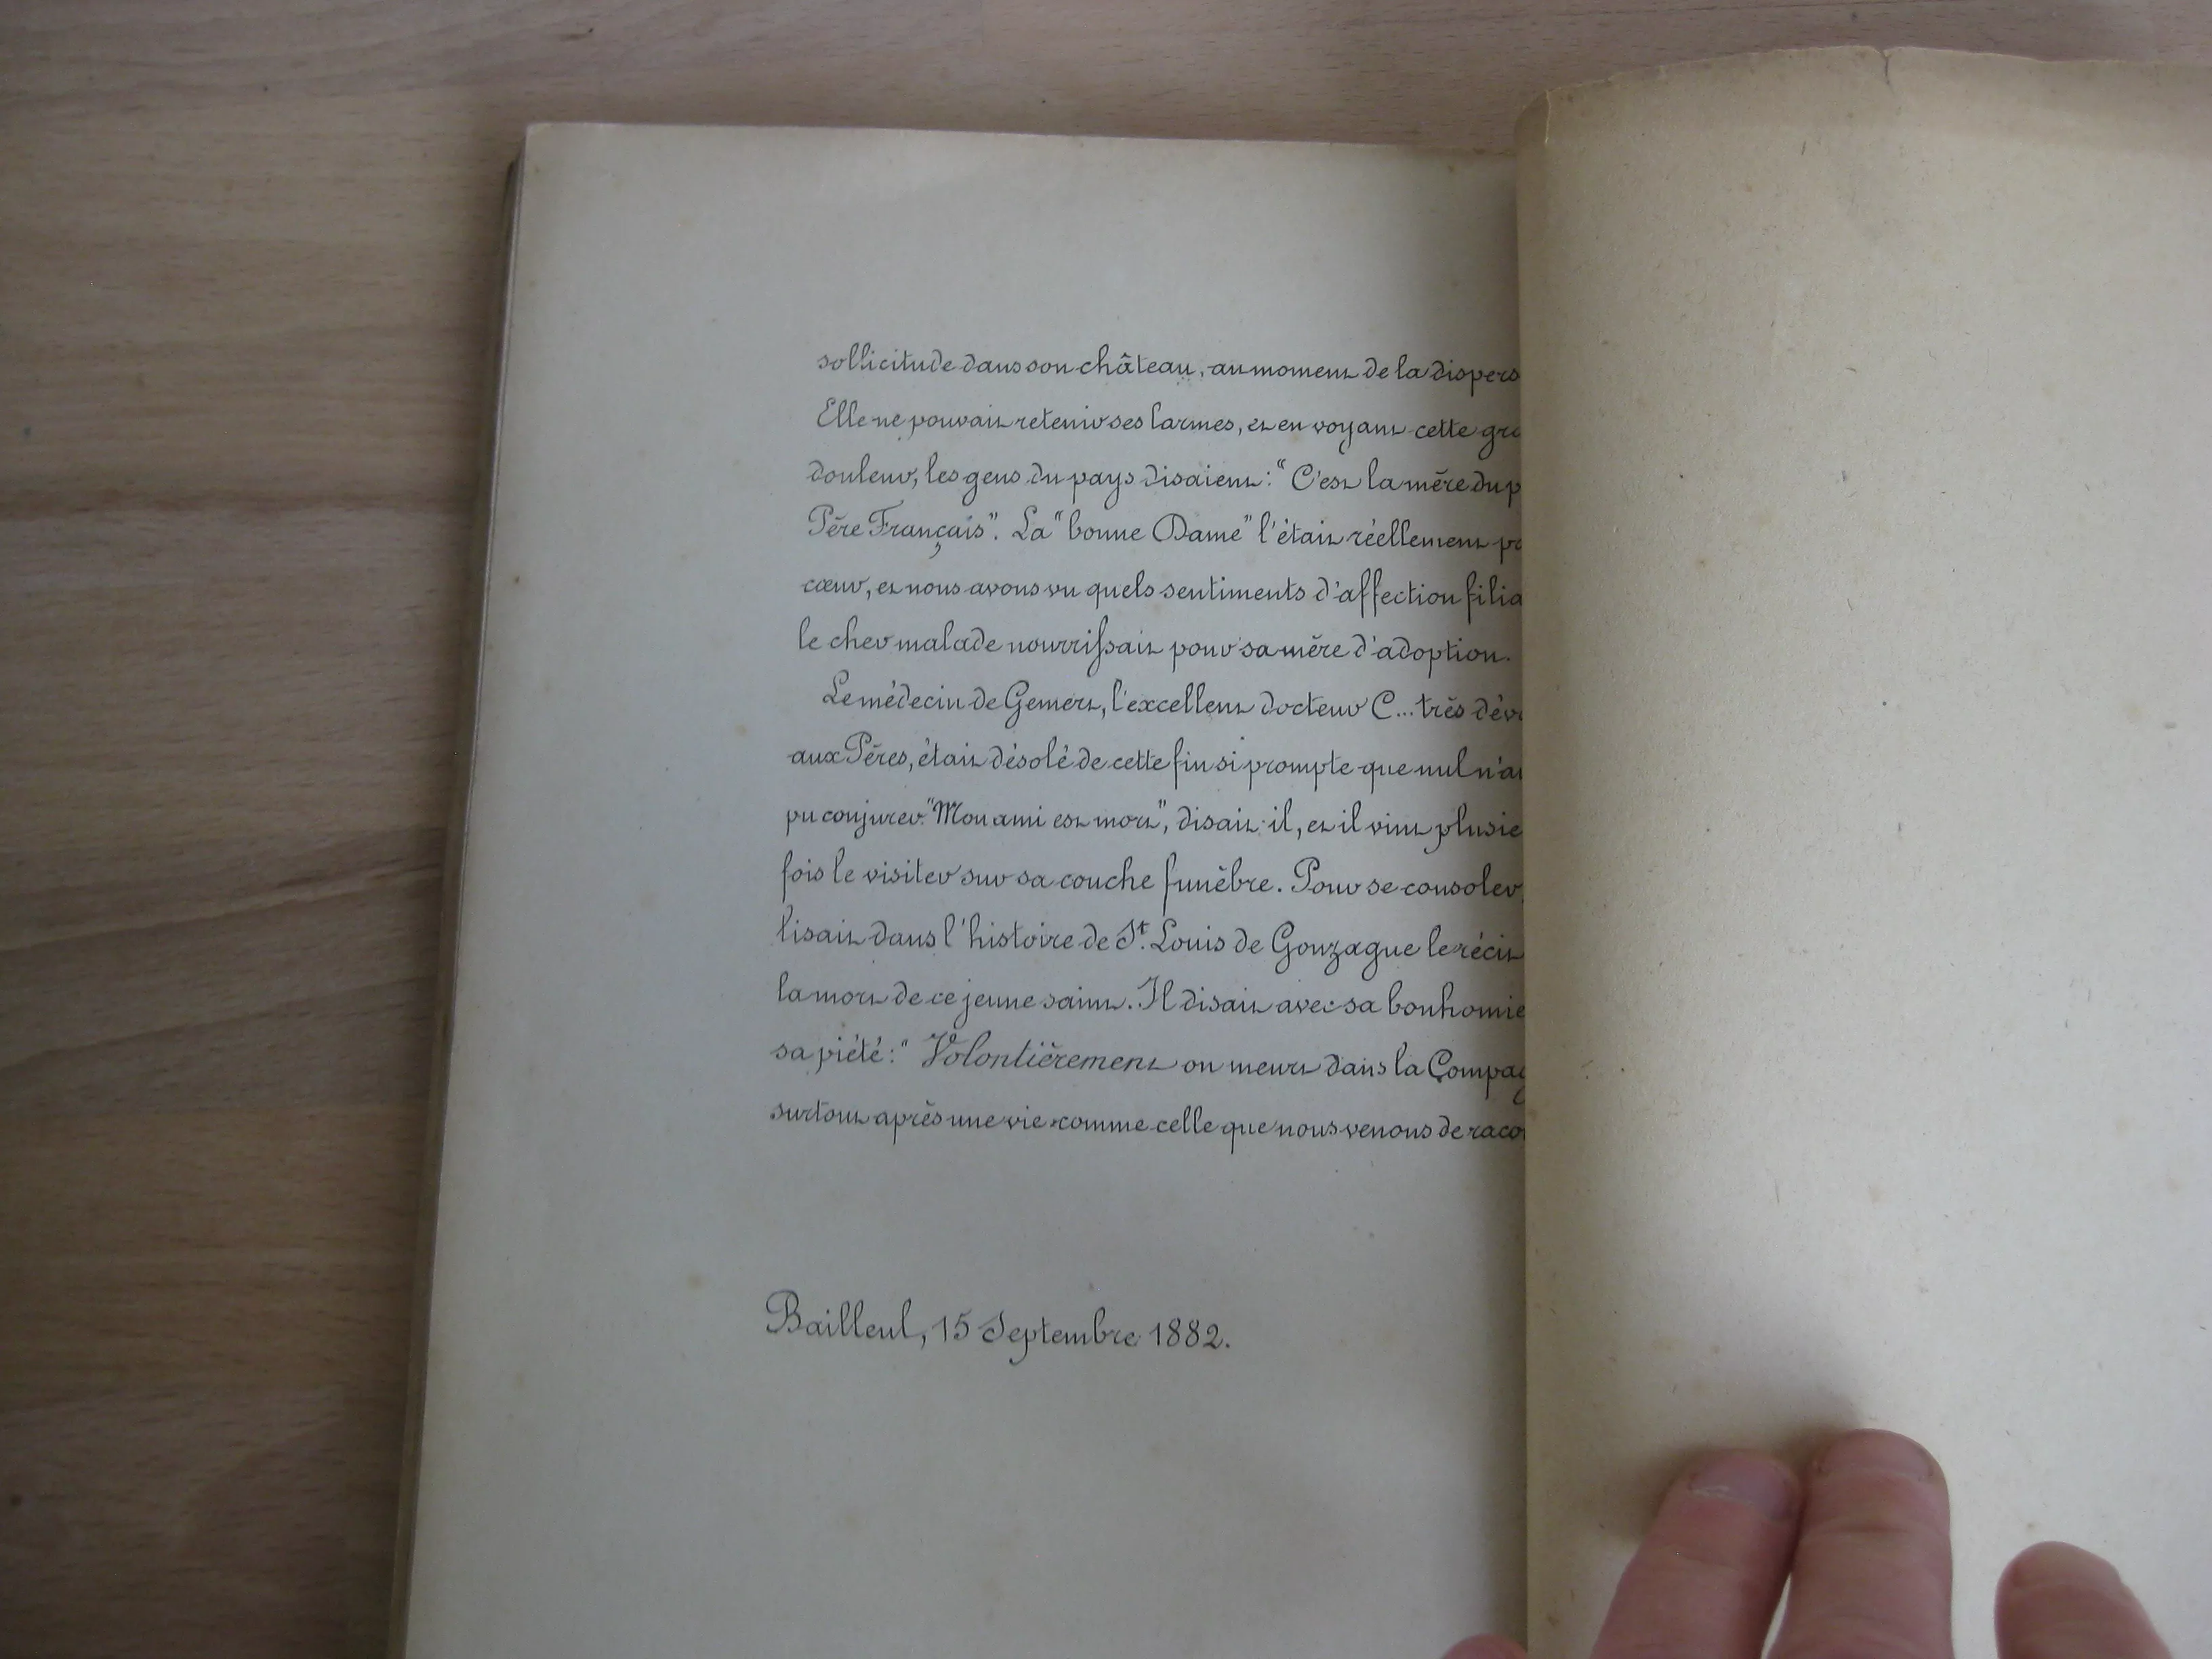 sollicitude dans son château, au moment de la dispers
Elle ne pouvait retenir ses larmes, et en voyant cette gra
douleur, les gens du pays disaient: "C'est la mère du p
Père Français". La "bonne Dame" l'était réellement pa
cœur, et nous avons vu quels sentiments d'affection filia
le cher malade nourrissait pour sa mère d'adoption.
Le médecin de Gemert, l'excellent docteur C... très dévo
aux Pères, était désolé de cette fin si prompte que nul n'a
pu conjurer. "Mon ami est mort", disait-il, et il vint plusie
fois le visiter sur sa couche funèbre. Pour se consoler,
lisait dans l'histoire de St. Louis de Gonzague le récit
la mort de ce jeune saint. Il disait avec sa bonhomie
sa piété: "Volontièrement on meurt dans la Compag
surtout après une vie comme celle que nous venons de raco
Bailleul, 15 Septembre 1882.